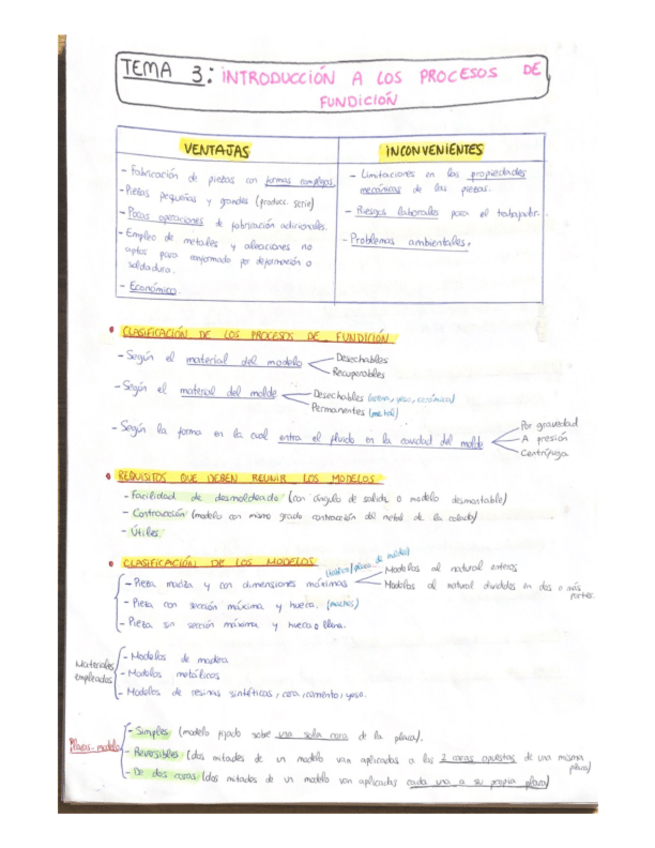 TEMA 3: INTRODUCCIÓN A LOS PROCESOS DE
FUNDICIÓN
VENTAJAS
- Fabricación de piezas con formas complejas.
- Piezas pequeñas y grandes (producc. serie)
- Pocas operaciones de fabricación adicionales.
- Empleo de metales y aleaciones no
aptos para conformado por deformación o
soldadura.
- Económico.
INCONVENIENTES
- Limitaciones en las propiedades
mecánicas de las piezas.
- Riesgos laborales para el trabajador.
- Problemas ambientales.
• CLASIFICACIÓN DE LOS PROCESOS DE FUNDICIÓN
- Según el material del modelo
Desechables
Recuperables
- Según el material del molde
Desechables (arena, yeso, cerámica)
Permanentes (metal)
- Según la forma en la cual entra el fluido en la cavidad del molde
Por gravedad
A presión
Centrífuga
• REQUISITOS QUE DEBEN REUNIR LOS MODELOS
- Facilidad de desmoldeado (con ángulo de salida o modelo desmontable)
- Contracción (modelo con mismo grado contracción del metal de la colada)
- Útiles
• CLASIFICACIÓN DE LOS MODELOS
- Pieza maciza y con dimensiones máximas
Modelos al natural enteros
Modelos al natural divididos en dos o más
partes.
- Pieza con sección máxima y hueca. (machos)
- Pieza sin sección máxima y hueca o llena.
Materiales
empleados
- Modelos de madera
- Modelos metálicos
- Modelos de resinas sintéticas, cera, cemento, yeso.
Placas-modelo
- Simples (modelo fijado sobre una sola cara de la placa).
- Reversibles (dos mitades de un modelo van aplicadas a las 2 caras opuestas de una misma
placa)
- De dos caras (dos mitades de un modelo van aplicadas cada una a su propia placa)